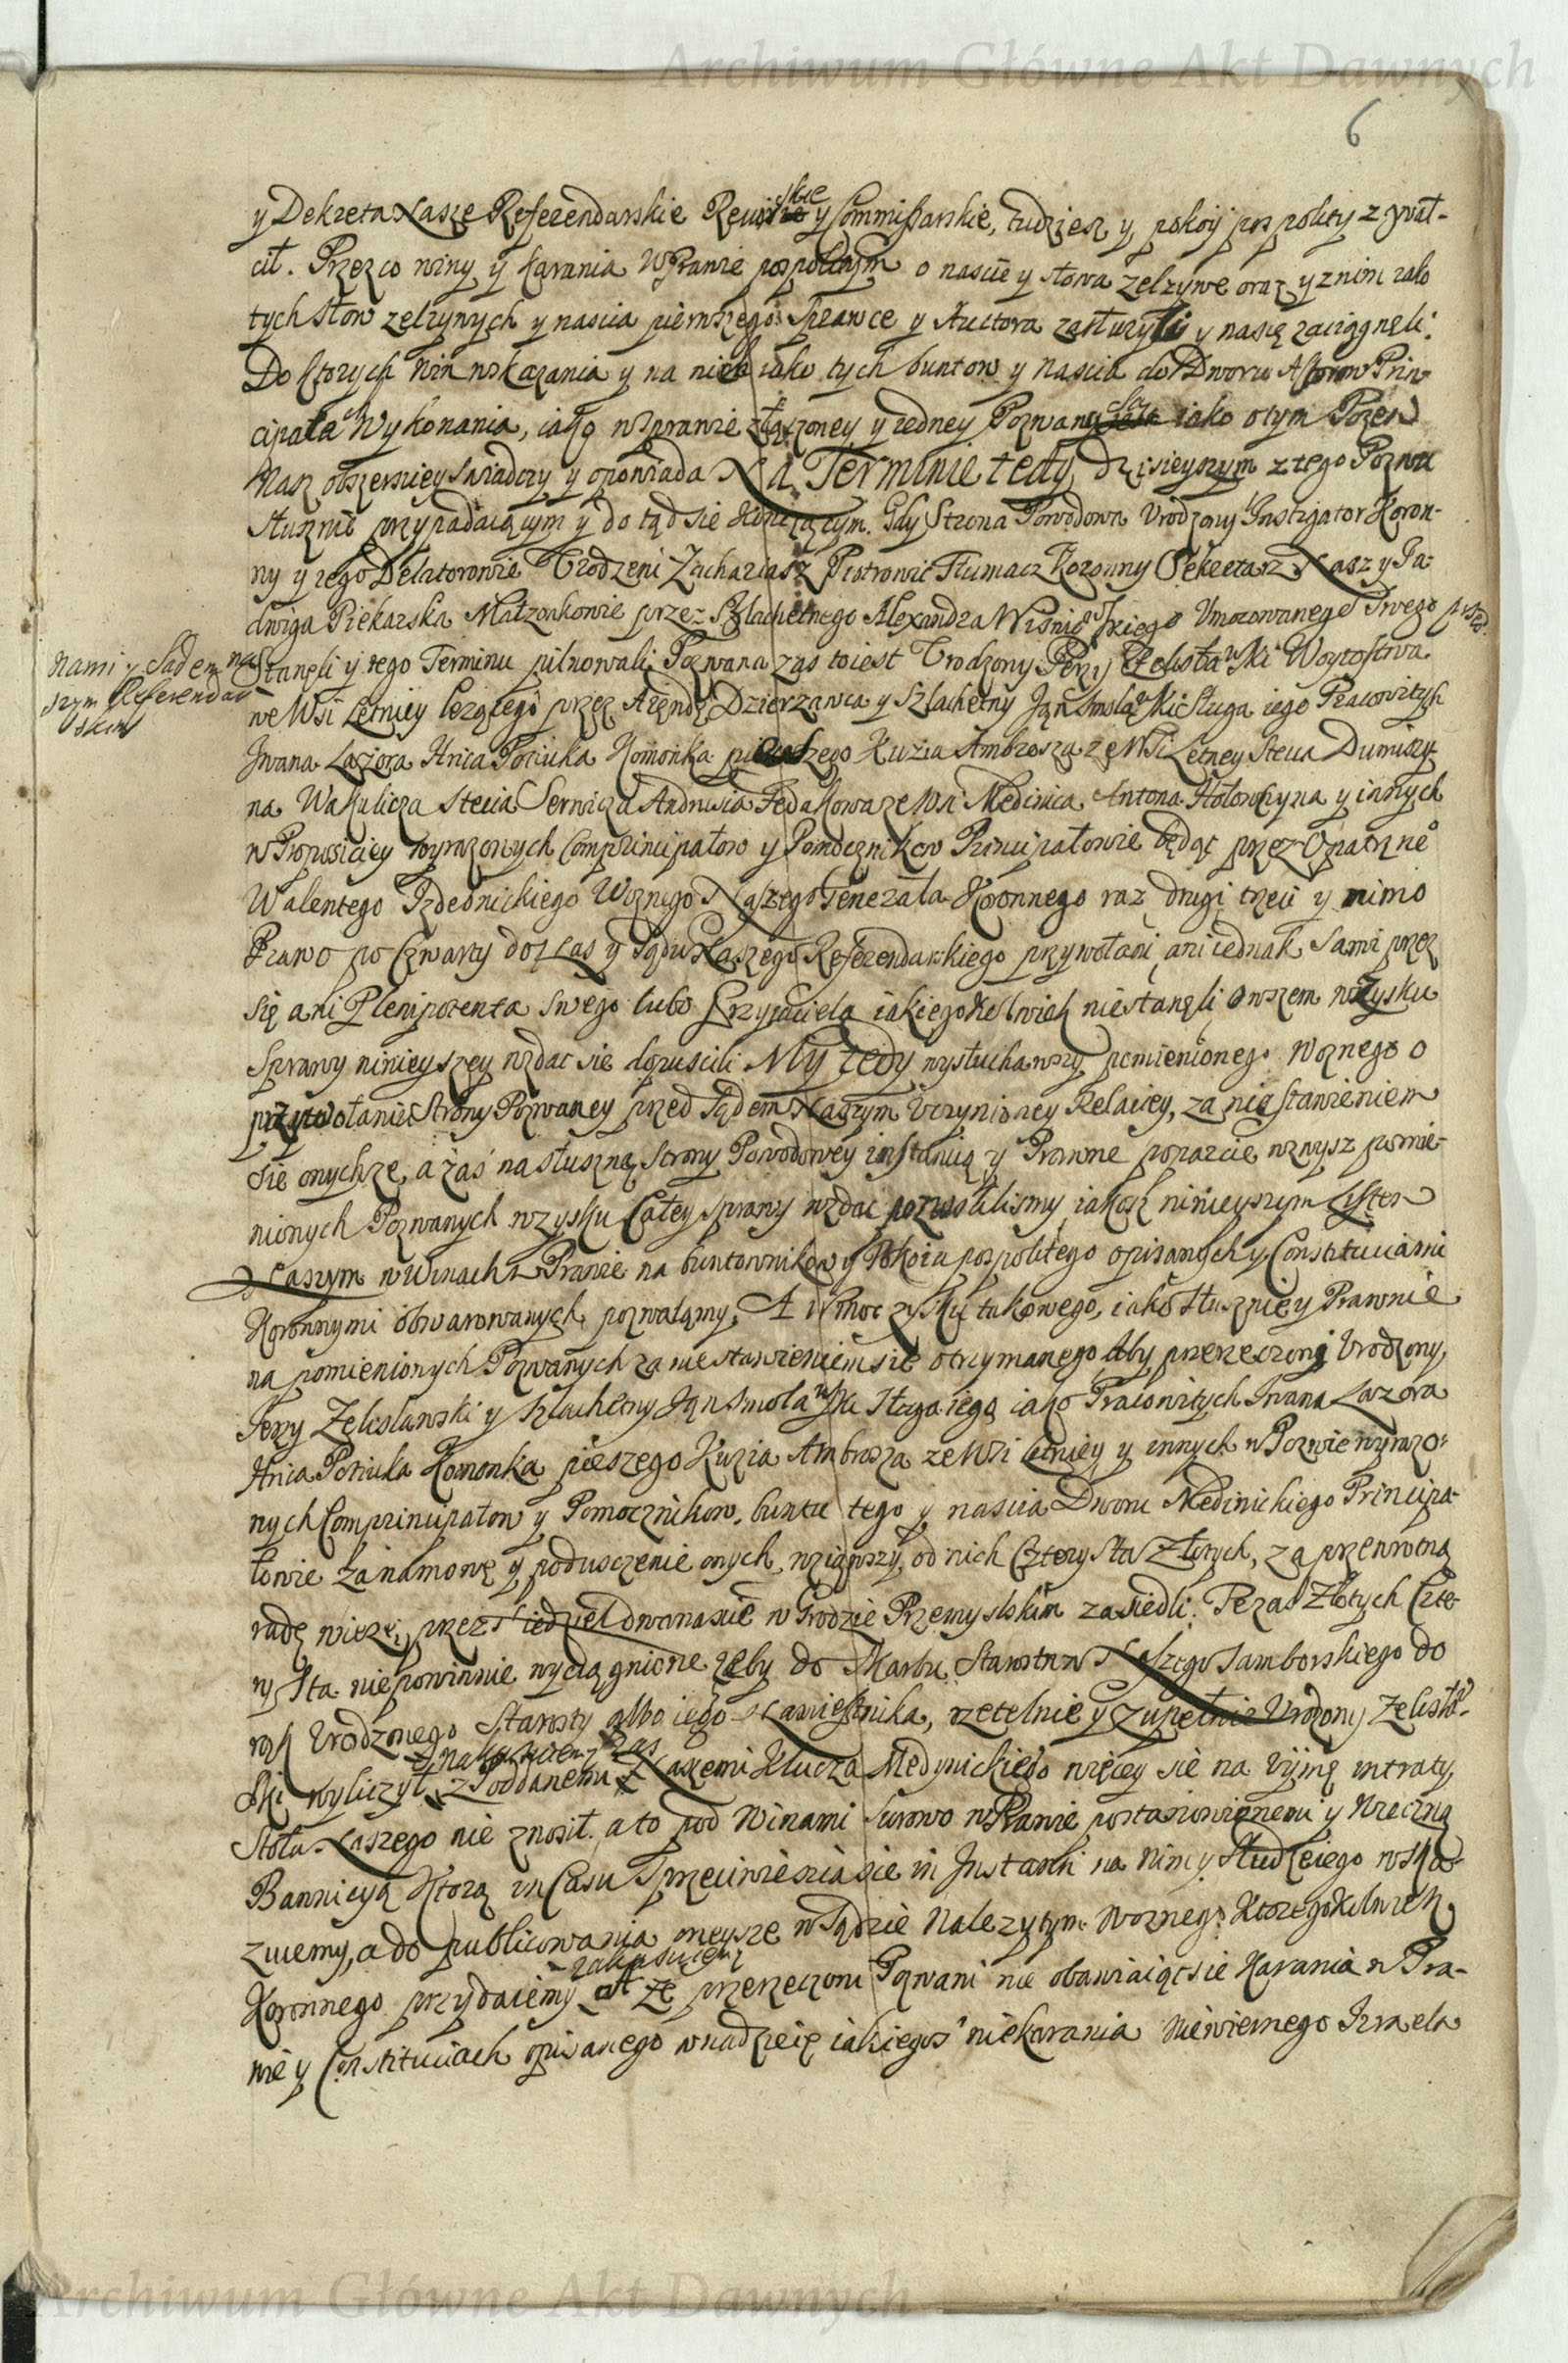 Archiwum Główne Akt Dawnych
6
y Dekreta Nasze Referendarskie Rewisorskie y Commissarskie, tudziesz y pokoy pospolity zgwał-
cił. Przez co winy y karania w Prawie pospolitym o nascie y słowa zelzywe oraz y znim iako
tych słow zelzywych y nascia pierwszego Sprawce y Auctora zasłuzyli y nasię zaciągneli.
Do ktorych win wskazania y na nich iako tych buntow y nascia do Dworu Aktorow Prin-
cipała Wykonania, iako w Sprawie złączoney y iedney Pozwany iako o tym Pozew
Nasz obszerniey swiadczy y opowiada Na Terminie tedy dzisieyszym z tego Pozwu
słusznie przypadaiącym y do tąd sie kończącym. Gdy Strona Powodowa Urodzony Instigator Koron-
ny y iego Delatorowie Urodzeni Zachariasz Piotrowic Tłumacz Koronny Sekretarz Nasz y Ja-
dwiga Piekarska Małzonkowie przez Szlachetnego Alexandra Wisniowskiego Umocowanego Swego przed
nami y Sądem na-
szym Referendar-
skim
stanęli y tego Terminu pilnowali, Pozwana zas to iest Urodzony Jerzy Zelisławski Woytostwa
we Wsi Letniey lezącego przez Arędę Dzierzawca y Szlachetny Jan Smolawski Sługa iego Pracowitych
Iwana Lazora Hrica Pociuka Komonka pieszego Kuzia Ambrosza ze Wsi Letney Steca
na Wakulicza Stecia Serwicza Andrusia Fedakowa ze Wsi Medinica Antona Hołowczyna y innych
w Propositiey wyrazonych Comprincipałow y Pomocznikow Principałowie będąc przez Opatrznego
Walentego Izdebnickiego Woznego Naszego Generała Koronnego raz drugi trzeci y mimo
Prawo po czwarty do Nas y Sądu Naszego Referendarskiego przywołani, ani iednak sami przez
się ani Plenipotenta swego lubo Przyiaciela iakiegokolwiek niestanęli, owszem w zysku
Sprawy ninieyszey wzdac sie dopuscili. My tedy wysłuchawszy pomienionego Woznego o
przywołaniu Strony Pozwaney przed Sądem Naszym uczynioney Relaciey, za nie stawieniem
sie onychze, a zaś na słuszną Strony Powodowey instancią y Prawne poparcie wzwysz pomie-
nionych Pozwanych w zysku całey sprawy wzdac pozwolilismy, iakosz ninieyszym Listem
Naszym w winach w Prawie na buntownikow y Pokoiu pospolitego opisanych y Constituciami
Koronnymi obwarowanych, pozwalamy. A w moc zysku takowego, iako słusznie y Prawnie
na pomienionych Pozwanych za niestawieniem sie otrzymanego Aby przerzeczony Urodzony
Jerzy Zelislawski y Szlachetny Jan Smolawski Sługa iego iako Pracowitych Iwana Lazora
Hrica Pociuka Komonka pieszego Kuzia Ambrosza ze Wsi Letniey y innych w Pozwie wyrazo-
nych Comprincipałow y Pomocznikow, buntu tego y nascia Dworu Medinickiego Principa-
łowie za namowę y poduszczenie onych, wziąwszy od nich Czterysta Złotych, za przewrotną
radę wieze przez Niedziel dwanascie w Grodzie Przemyslskim zasiedli. Te zas Złotych Czte-
rysta niepowinnie wyciągnione zeby do Skarbu Starostwa Naszego Samborskiego do
rąk Urodzonego Starosty albo iego Namiestnika, rzetelnie y zupełnie Urodzony Zelisław-
ski wyliczył. z Poddanemi Naszemi Klucza Medynickiego więcey sie na uymę intraty
Stołu Naszego nie znosił. a to pod Winami surowo w Prawie postanowionemi y Wieczną
Bannicyą ktorą in casu sprzeciwienia sie in Instanti na nim y Słudze iego wska-
zuiemy, a do publicowania oneysze w Sądzie Nalezytym. Woznego Ktoregokolwiek
Koronnego przydaiemy ze przerzeczoni Pozwani nie obawiaiąc sie Karania w Pra-
wie y Constituciach opisanego w nadzieię iakiegos niekarania niewiernego Izraela
Archiwum Główne Akt Dawnych